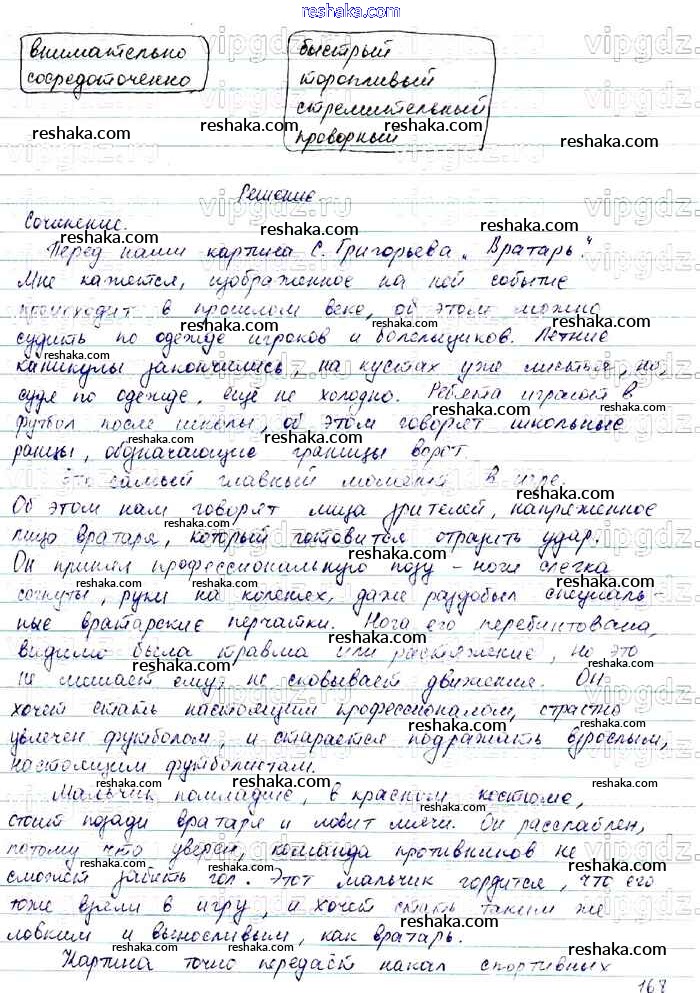 reshaka.com
внимательно
сосредоточенно
быстрый
торопливый
стремительный
проворный
Решение.
Сочинение.
Перед нами картина С. Григорьева „Вратарь".
Мне кажется, изображенное на ней событие
происходит в прошлом веке, об этом можно
судить по одежде игроков и болельщиков. Летние
каникулы закончились, на кустах уже листья, но,
судя по одежде, еще не холодно. Ребята играют в
футбол после школы, об этом говорят школьные
ранцы, обозначающие границы ворот.
Это самый главный момент в игре.
Об этом нам говорят лица зрителей, напряженное
лицо вратаря, который готовится отразить удар.
Он принял профессиональную позу - ноги слегка
согнуты, руки на коленях, даже раздобыл специаль-
ные вратарские перчатки. Нога его перебинтована,
видимо была травма или растяжение, но это
не мешает ему, не сковывает движения. Он
хочет стать настоящим профессионалом, страстно
увлечен футболом, и старается подражать взрослым,
настоящим футболистам.
Мальчик помладше, в красном костюме,
стоит позади вратаря и ловит мячи. Он расслаблен,
потому что уверен, команда противников не
сможет забить гол. Этот мальчик гордится, что его
тоже взяли в игру, и хочет стать таким же
ловким и выносливым, как вратарь.
Картина точно передаёт накал спортивных
167